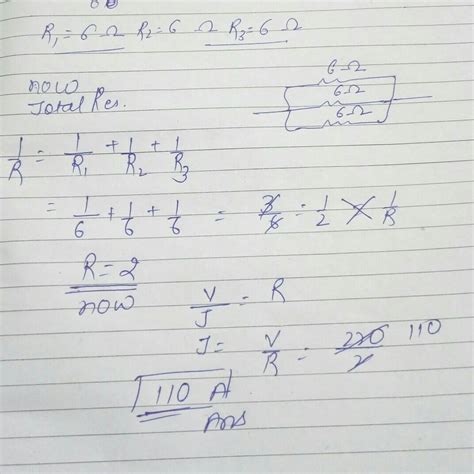 R₁ = 6 Ω R₂ = 6 Ω R₃ = 6 Ω
6 Ω
6 Ω
6 Ω
now
Total Res.
1/R = 1/R₁ + 1/R₂ + 1/R₃
= 1/6 + 1/6 + 1/6 = 3/6 = 1/2 1/R
R = 2
now
V/I = R
I = V/R = 220/2 110
110 A
Ans